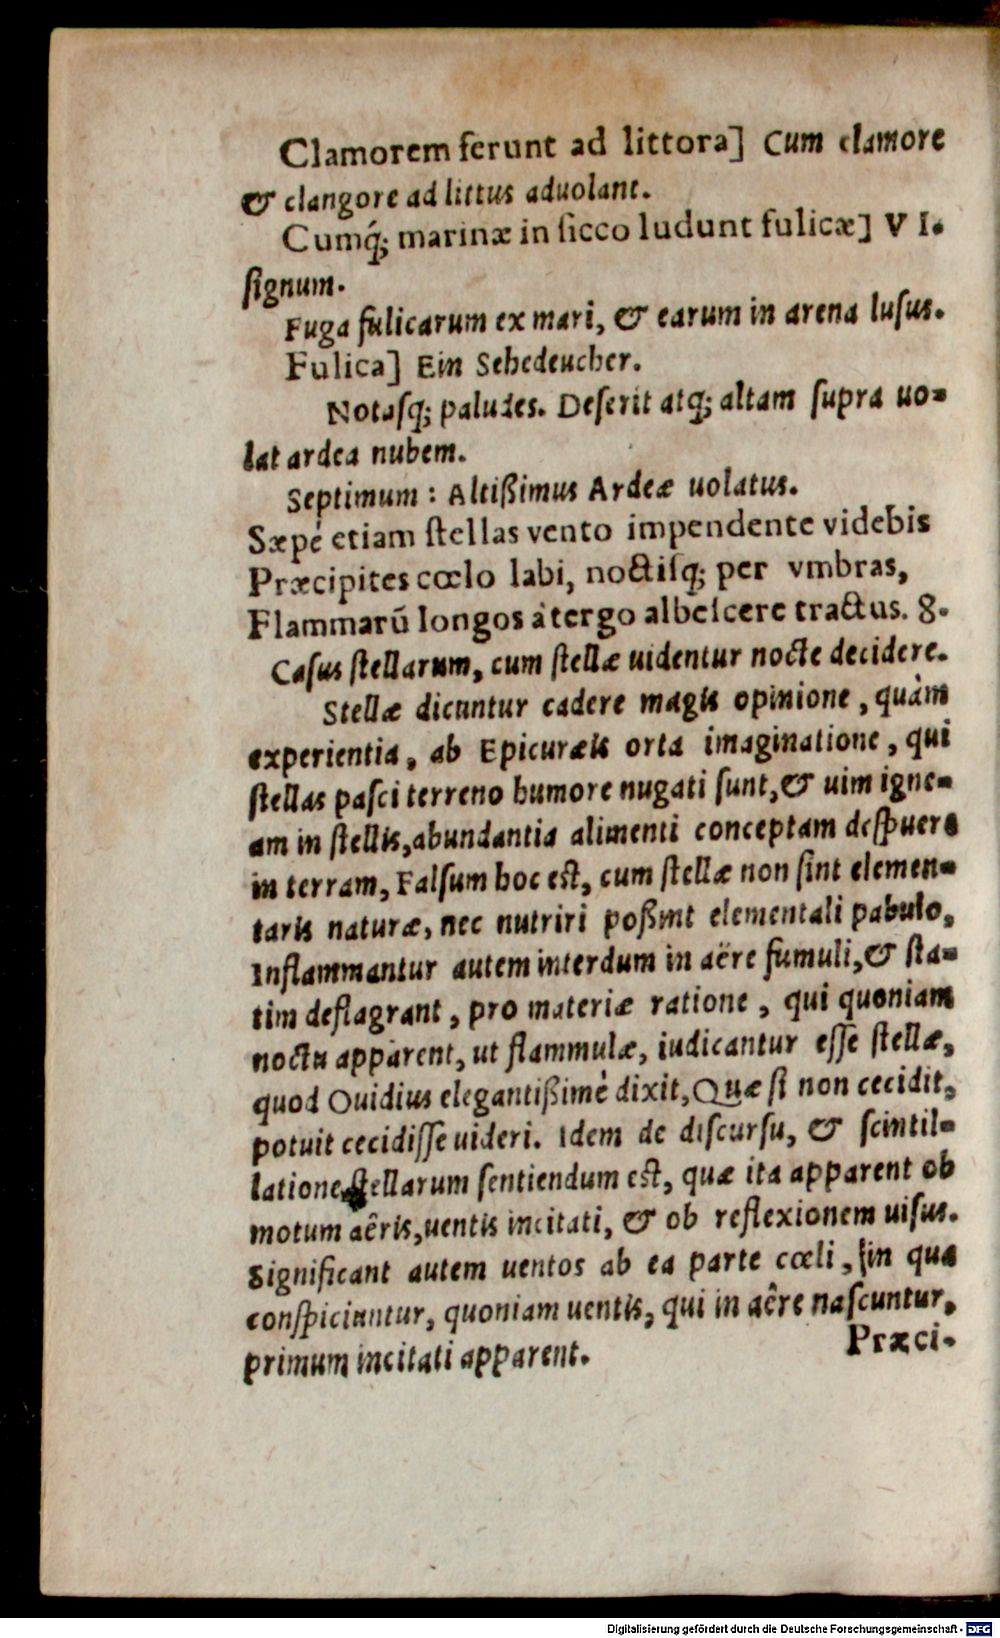 Clamorem ferunt ad littora] Cum clamore
& clangore ad littus aduolant.
Cumq́; marinæ in sicco ludunt fulicæ] V I.
ſignum.
Fuga fulicarum ex mari, & earum in arena luſus.
Fulica] Ein Sehedeucher.
Notaſq; paludes. Deſerit atq; altam ſupra uo-
lat ardea nubem.
Septimum: Altißimus Ardeæ uolatus.
Sæpé etiam ſtellas vento impendente videbis
Præcipites cœlo labi, noctiſq; per vmbras,
Flammarū longos à tergo albeſcere tractus. 8.
Caſus ſtellarum, cum ſtellæ uidentur nocte decidere.
Stellæ dicuntur cadere magis opinione, quàm
experientia, ab Epicuræis orta imaginatione, qui
ſtellas paſci terreno humore nugati ſunt, & uim igne-
am in ſtellis, abundantia alimenti conceptam deſpuere
in terram, Falſum hoc eſt, cum ſtellæ non ſint elemen-
taris naturæ, nec nutriri poßint elementali pabulo,
Inflammantur autem interdum in aëre fumuli, & ſta-
tim deflagrant, pro materiæ ratione, qui quoniam
noctu apparent, ut flammulæ, iudicantur eſſe ſtellæ,
quod Ouidius elegantißimè dixit, Quæ ſi non cecidit,
potuit cecidiſſe uideri. Idem de diſcurſu, & ſcintil-
latione ſtellarum ſentiendum eſt, quæ ita apparent ob
motum aêris, uentis incitati, & ob reflexionem uiſus.
Significant autem uentos ab ea parte cœli, in qua
conſpiciuntur, quoniam uentis, qui in aêre naſcuntur,
primum incitati apparent.
Præci-
Digitalisierung gefördert durch die Deutsche Forschungsgemeinschaft - DFG